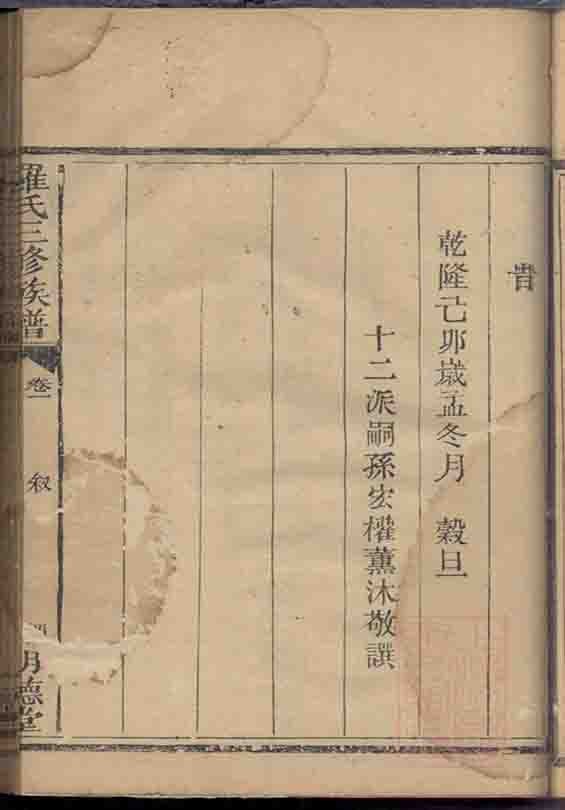 旹
乾隆己卯歲孟冬月 穀旦
十二派嗣孫宏權薰沐敬譔
羅氏三修族譜
卷一
叙
明德堂